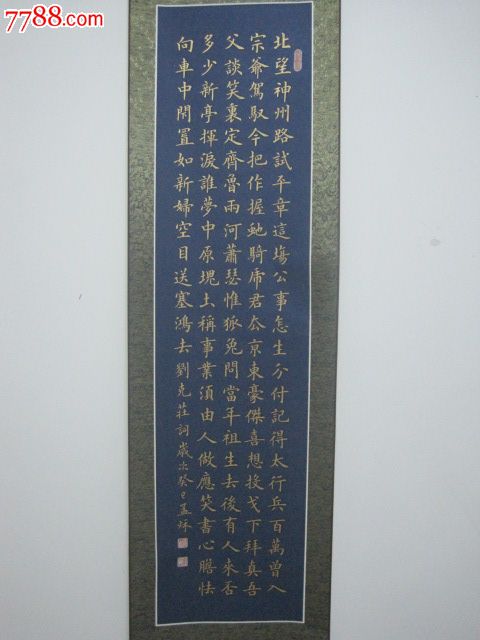 7788.com
北望神州路試平章這場公事怎生分付記得太行兵百萬曾入
宗爺駕馭今把作握蛇騎虎君去京東豪傑喜想投戈下拜真吾
父談笑裏定齊魯兩河蕭瑟惟狐兔問當年祖生去後有人來否
多少新亭揮淚誰夢中原塊土稱事業須由人做應笑書心膽怯
向車中閉置如新婦空目送塞鴻去劉克莊詞歲次癸巳孟秋